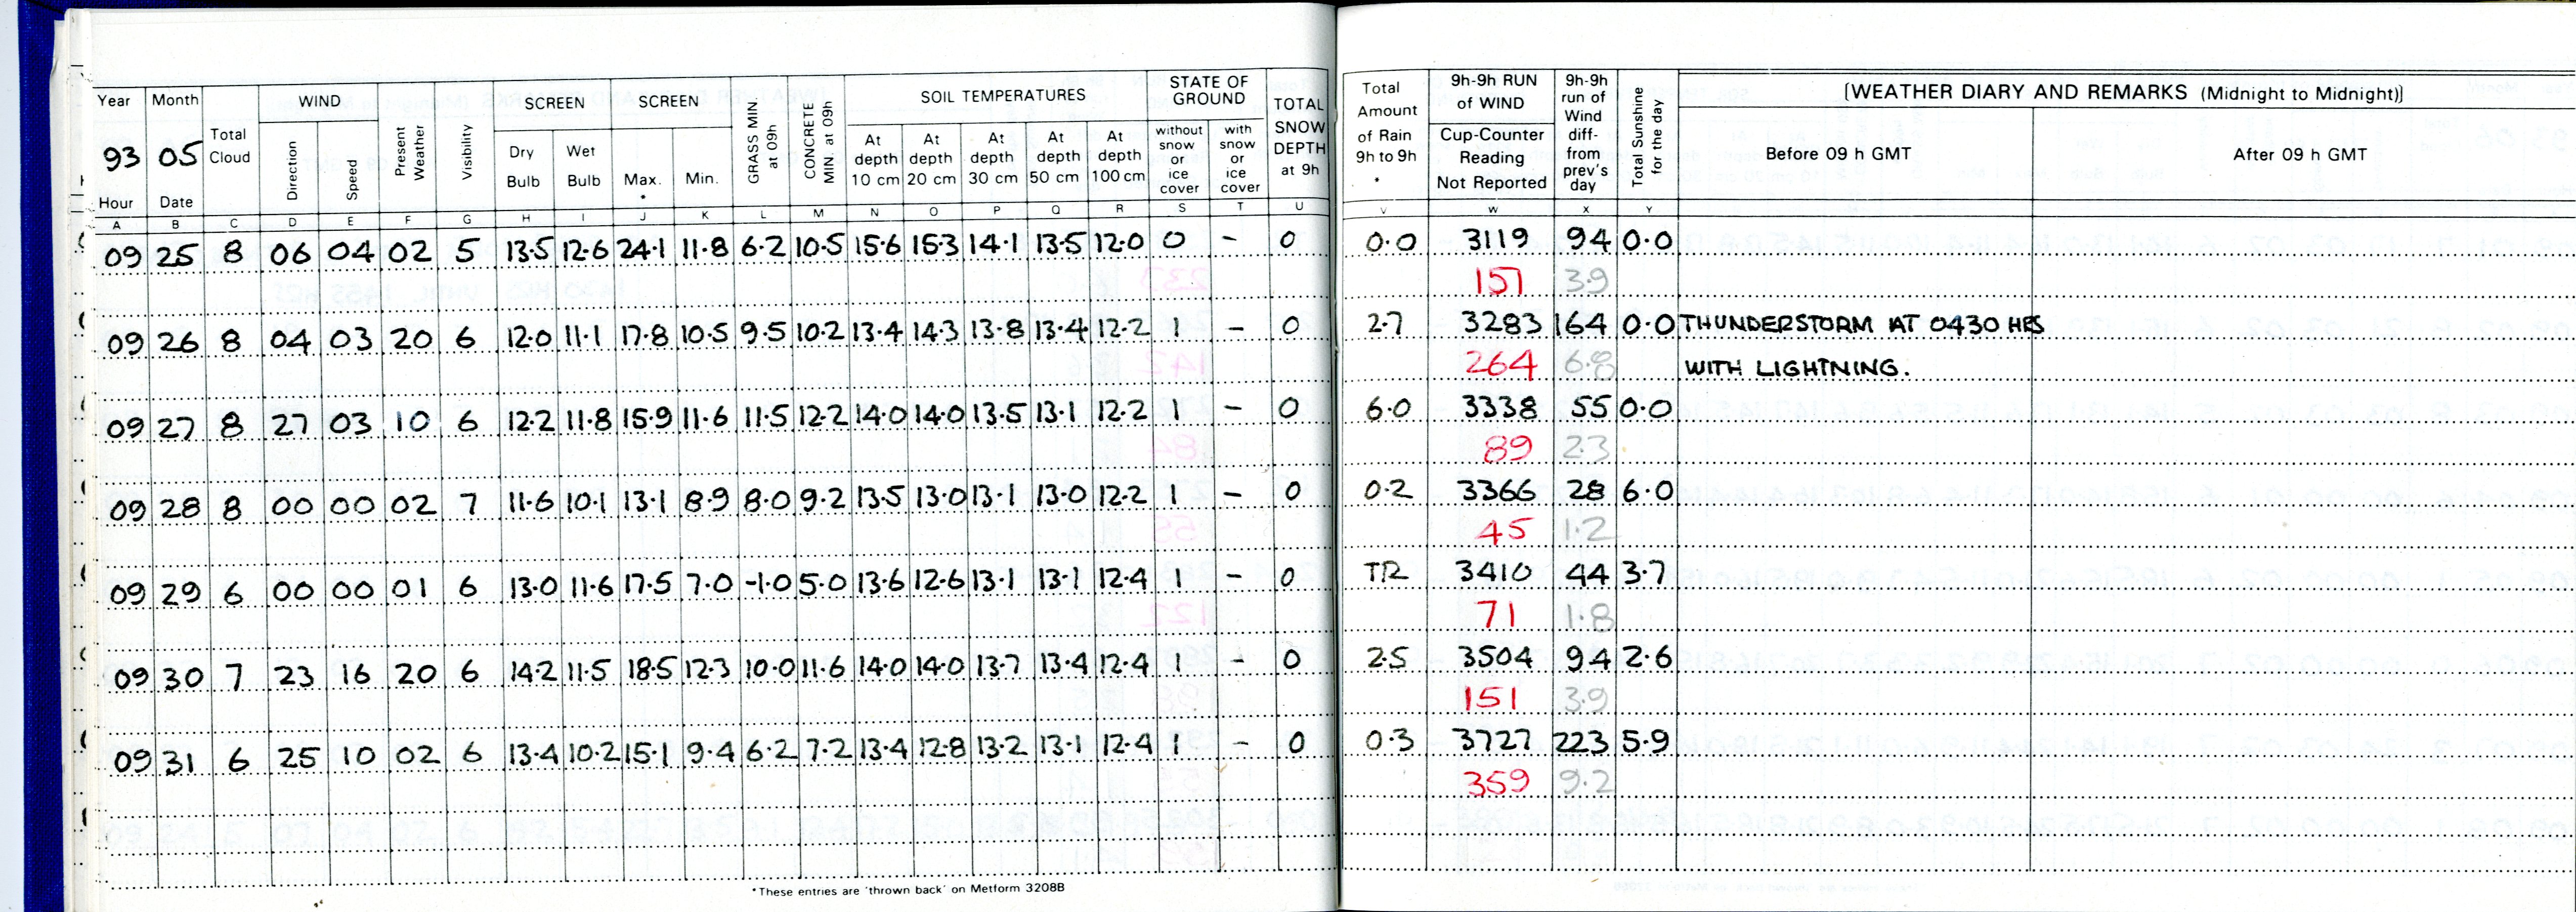 Year Month Total Cloud WIND Present Weather Visibility SCREEN SCREEN GRASS MIN. at 09h CONCRETE MIN. at 09h SOIL TEMPERATURES STATE OF GROUND TOTAL SNOW DEPTH at 9h Total Amount of Rain 9h to 9h * 9h-9h RUN of WIND 9h-9h run of Wind diff- from prev's day Total Sunshine for the day [WEATHER DIARY AND REMARKS (Midnight to Midnight)]
93 05 Direction Speed Dry Bulb Wet Bulb Max. * Min. At depth 10 cm At depth 20 cm At depth 30 cm At depth 50 cm At depth 100 cm without snow or ice cover with snow or ice cover Cup-Counter Reading Not Reported Before 09 h GMT After 09 h GMT
Hour Date
A B C D E F G H I J K L M N O P Q R S T U V W X Y
09 25 8 06 04 02 5 13.5 12.6 24.1 11.8 6.2 10.5 15.6 15.3 14.1 13.5 12.0 0 - 0 0.0 3119 94 0.0
151 3.9
09 26 8 04 03 20 6 12.0 11.1 17.8 10.5 9.5 10.2 13.4 14.3 13.8 13.4 12.2 1 - 0 2.7 3283 164 0.0 THUNDERSTORM AT 0430 HRS
264 6.8 WITH LIGHTNING.
09 27 8 27 03 10 6 12.2 11.8 15.9 11.6 11.5 12.2 14.0 14.0 13.5 13.1 12.2 1 - 0 6.0 3338 55 0.0
89 2.3
09 28 8 00 00 02 7 11.6 10.1 13.1 8.9 8.0 9.2 13.5 13.0 13.1 13.0 12.2 1 - 0 0.2 3366 28 6.0
45 1.2
09 29 6 00 00 01 6 13.0 11.6 17.5 7.0 -1.0 5.0 13.6 12.6 13.1 13.1 12.4 1 - 0 TR 3410 44 3.7
71 1.8
09 30 7 23 16 20 6 14.2 11.5 18.5 12.3 10.0 11.6 14.0 14.0 13.7 13.4 12.4 1 - 0 2.5 3504 94 2.6
151 3.9
09 31 6 25 10 02 6 13.4 10.2 15.1 9.4 6.2 7.2 13.4 12.8 13.2 13.1 12.4 1 - 0 0.3 3727 223 5.9
359 9.2
*These entries are 'thrown back' on Metform 3208B